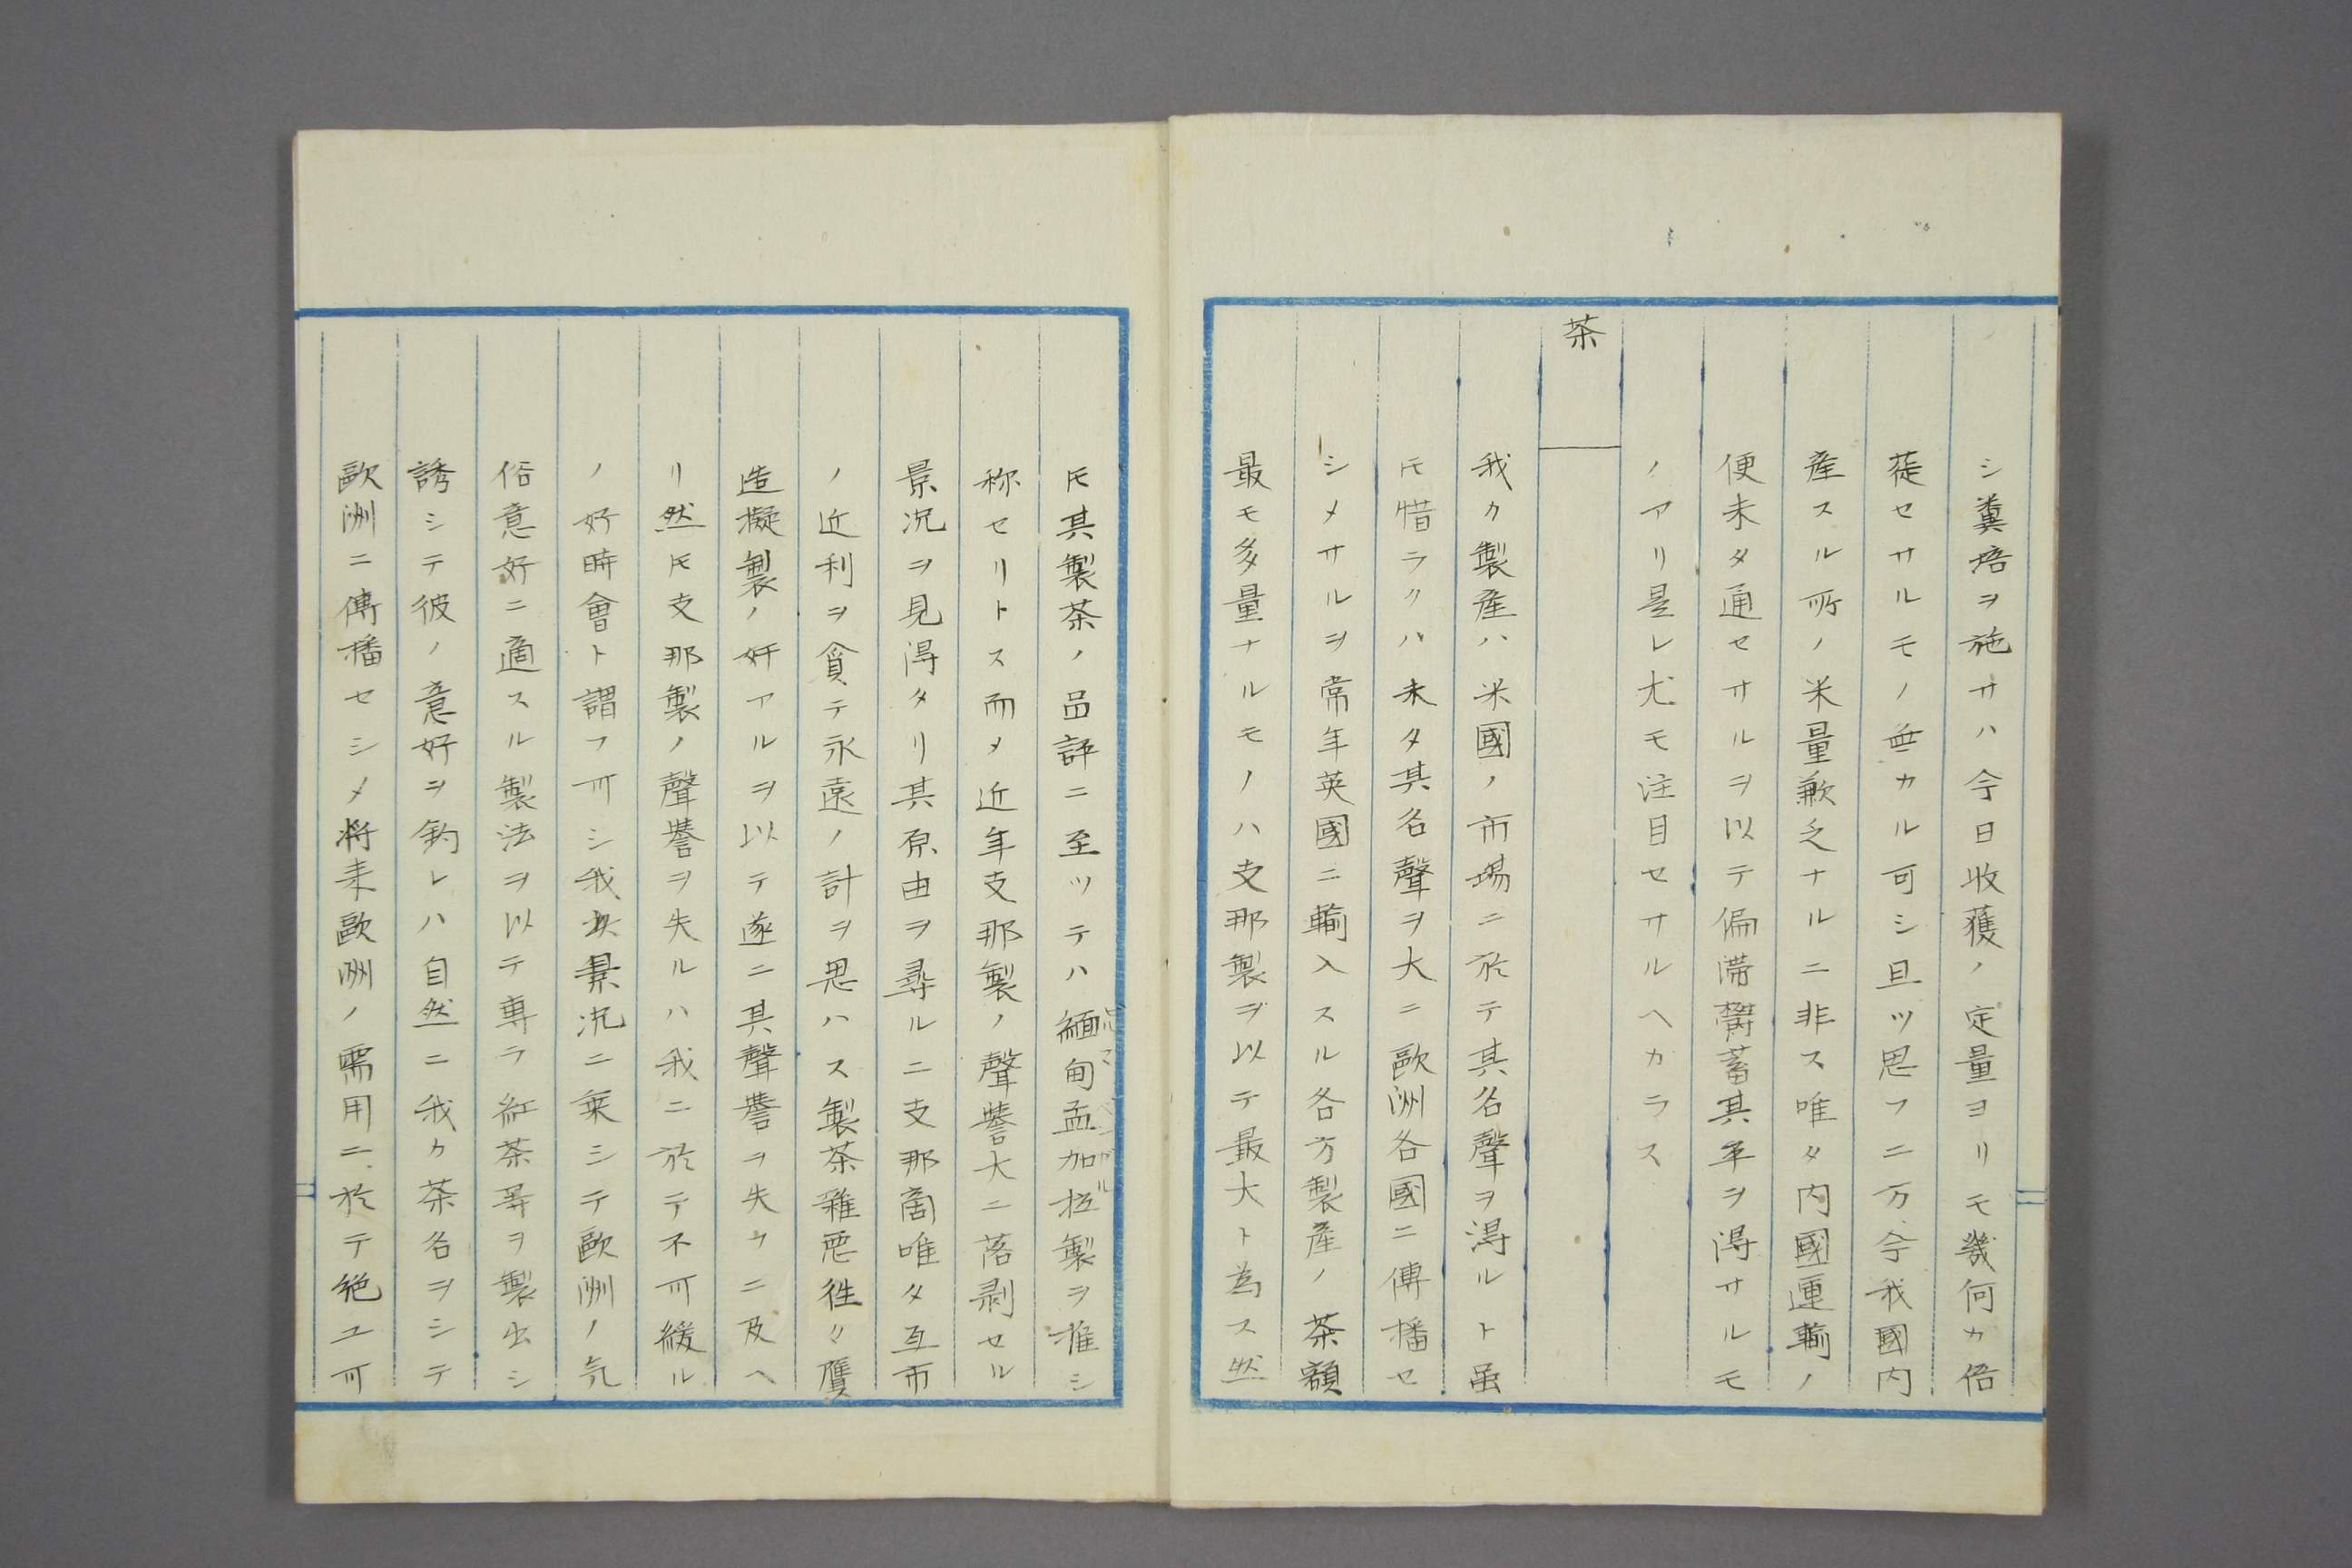 シ糞培ヲ施サハ今日收獲ノ定量ヨリモ幾何カ倍
蓰セサルモノ無カル可シ且ツ思フニ方今我國内
産スル所ノ米量歉乏ナルニ非ス唯タ内國運輸ノ
便未タ通セサルヲ以テ偏滯欝蓄其平ヲ得サルモ
ノアリ是レ尤モ注目セサルヘカラス
茶
我カ製産ハ米國ノ市場ニ於テ其名聲ヲ得ルト虽
𪜈惜ラクハ未タ其名聲ヲ大ニ歐洲各國ニ傳播セ
シメサルヲ常年英國ニ輸入スル各方製産ノ茶額
最モ多量ナルモノハ支那製ヲ以テ最大ト為ス然
𪜈其製茶ノ品評ニ至ツテハ緬甸孟加拉製ヲ推シ
称セリトス而メ近年支那製ノ聲譽大ニ落剥セル
景況ヲ見得タリ其原由ヲ尋ルニ支那商唯タ互市
ノ近利ヲ貪テ永遠ノ計ヲ思ハス製茶雜悪徃々贋
造擬製ノ奸アルヲ以テ遂ニ其聲譽ヲ失ウニ及ヘ
リ然𪜈支那製ノ聲譽ヲ失ルハ我ニ於テ不可緩ル
ノ好時會ト謂フ可シ我此景況ニ乗シテ歐洲ノ気
俗意好ニ適スル製法ヲ以テ專ラ紅茶等ヲ製出シ
誘シテ彼ノ意好ヲ釣レハ自然ニ我カ茶名ヲシテ
歐洲ニ傳播セシメ将来歐洲ノ需用ニ於テ絶ユ可